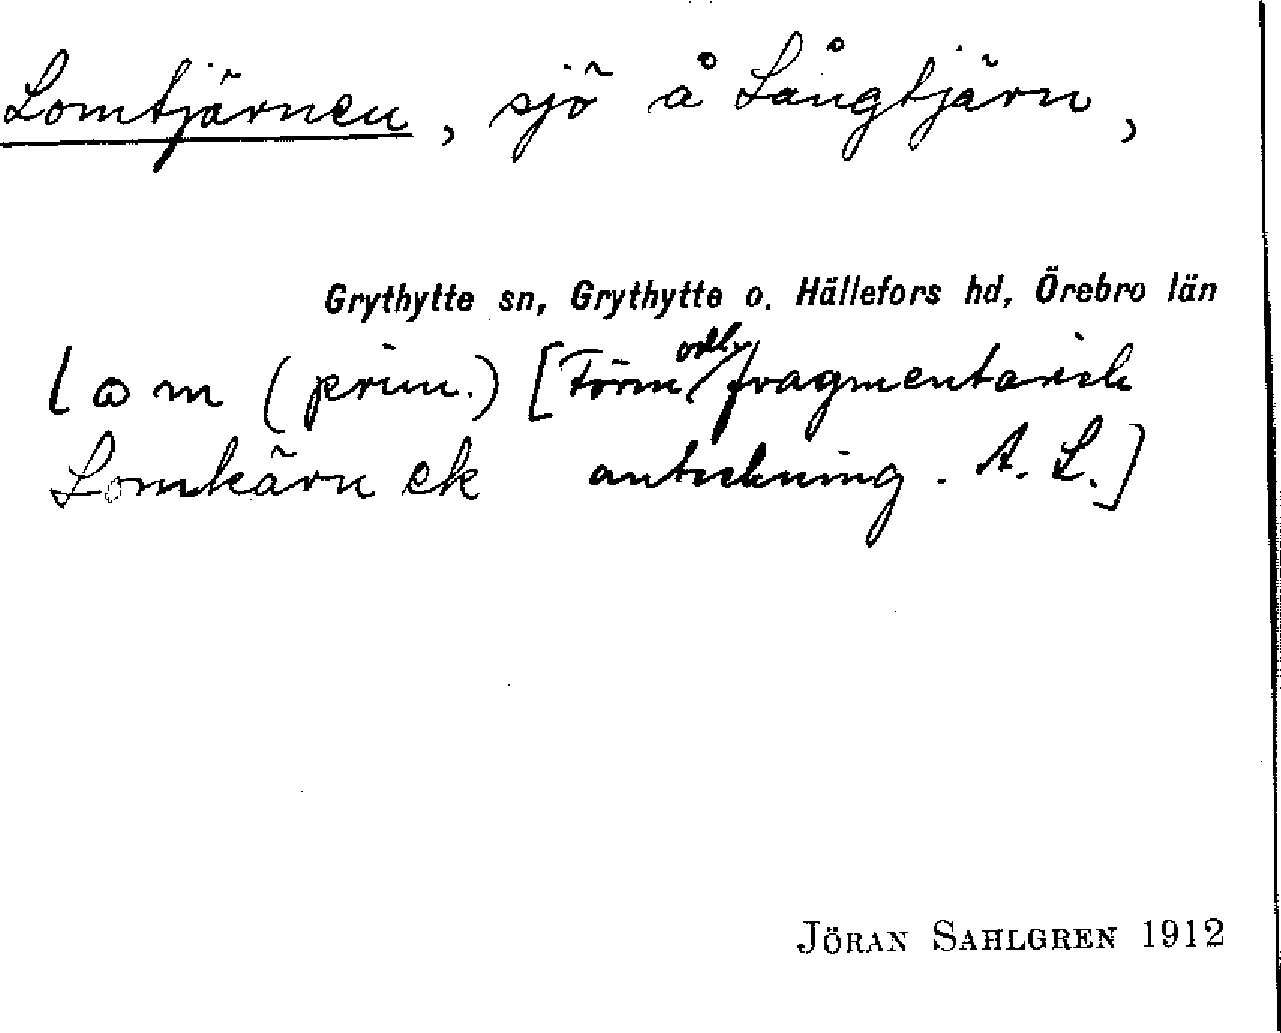 Lomtjärnen, sjö å Långtjärn,
Grythytte sn, Grythytte o. Hällefors hd, Örebro län
lɷm (prim.) [Förm odl. fragmentarisk
Lomkärn ek anteckning. A. L.]
JÖRAN SAHLGREN 1912